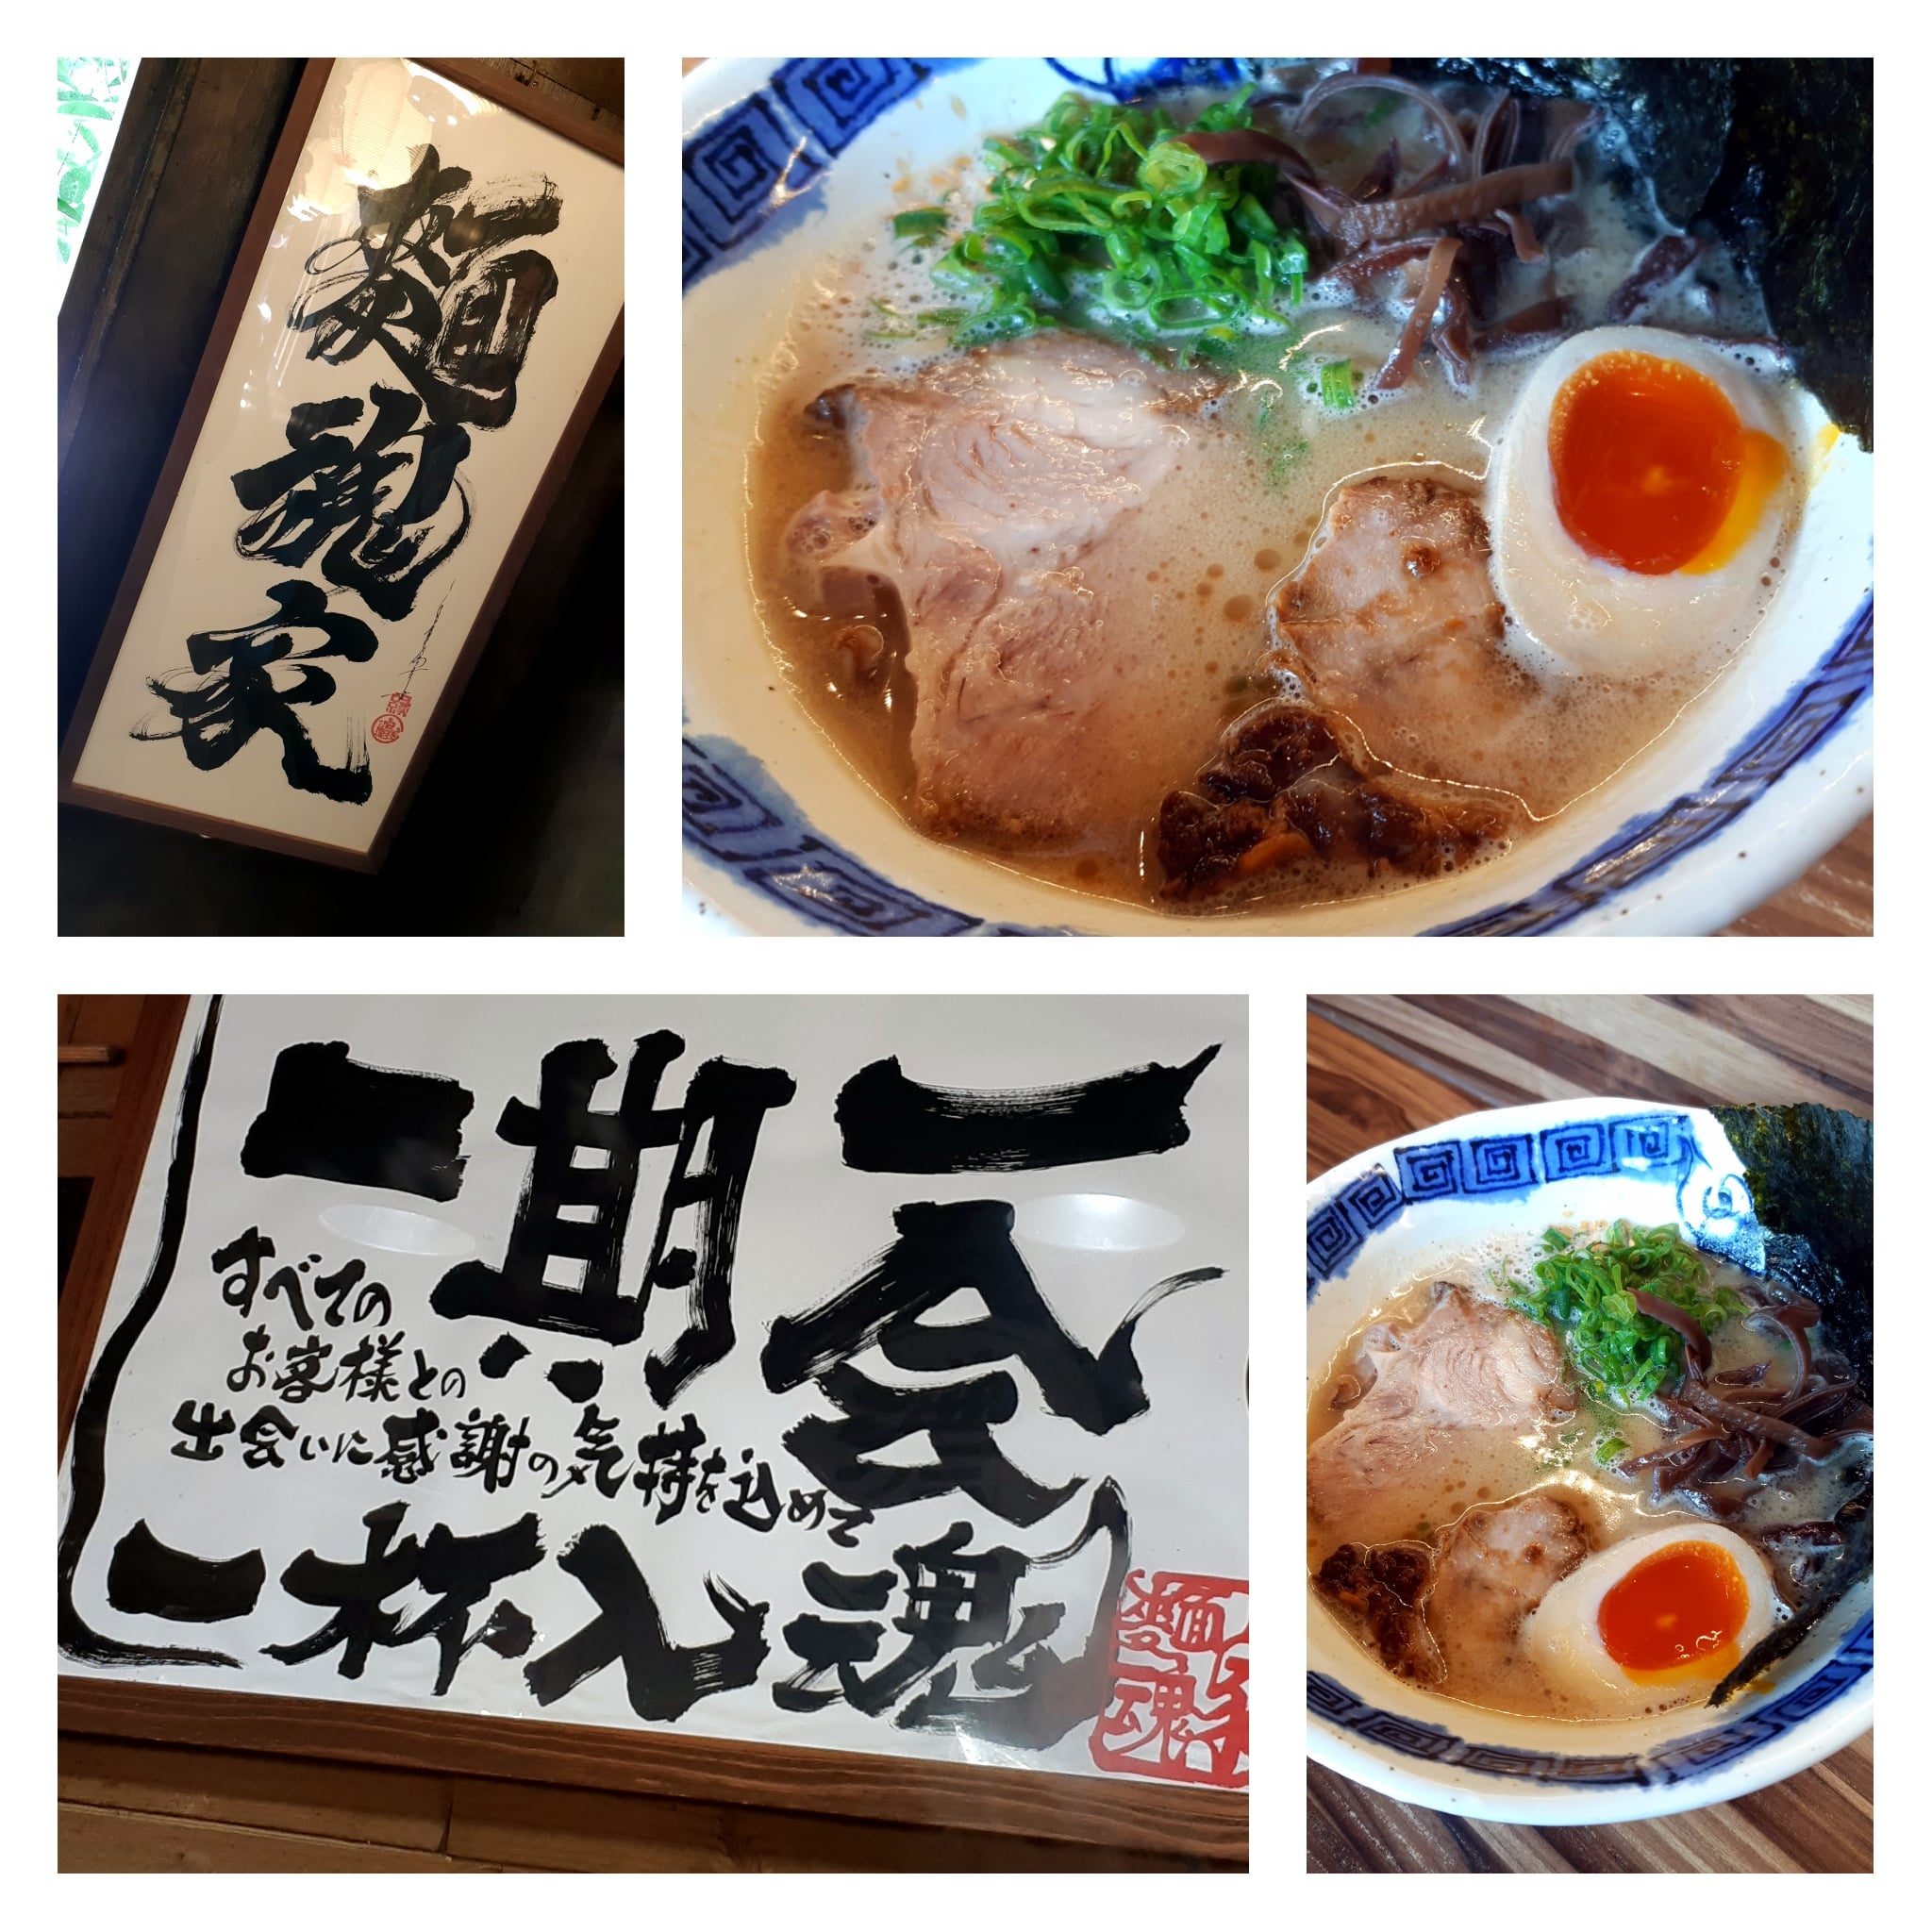 麺魂家
一期一会
すべての
お客様との
出会いに感謝の気持を込めて
一杯入魂
麺魂家